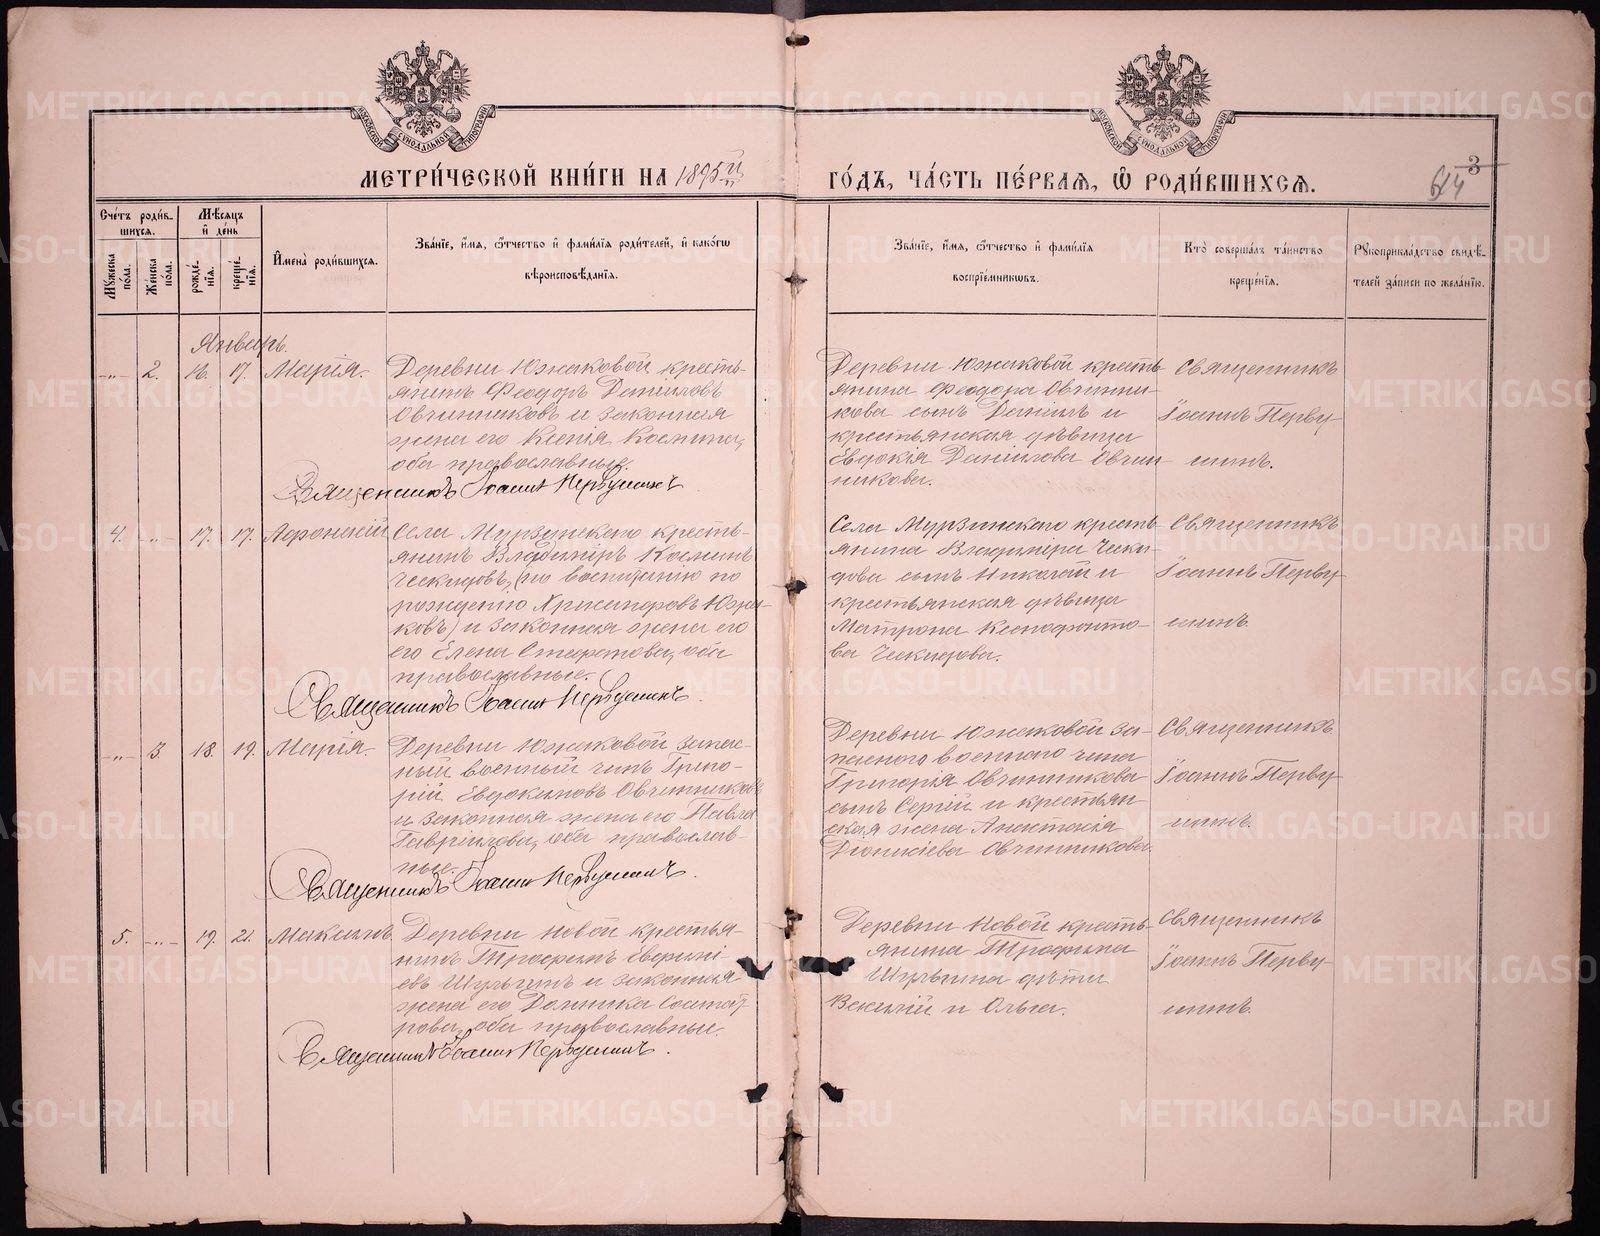 МЕТРИ́ЧЕСКОЙ КНИ́ГИ НА 1895й
ГО́ДЪ, ЧА́СТЬ ПЕ́РВАЯ, Ѡ҆ РОДИ́ВШИХСѦ.
3
614
МОСКОВСКОЙ СѴНОДАЛЬНОЙ ТИПОГРАФІИ
МОСКОВСКОЙ СѴНОДАЛЬНОЙ ТИПОГРАФІИ
Сче́тъ роди́в-
шихсѧ.
Мꙋжеска по́ла.
Же́нска по́ла.
Мѣ́сѧцъ
и҆ де́нь
рожде́-
нїѧ.
креще́-
нїѧ.
И҆мена̀ роди́вшихсѧ.
Зва́нїе, и҆́мѧ, ѻ҆́тчество и҆ фами́лїѧ роди́телей, и҆ како́гѡ
вѣроисповѣ́данїѧ.
Зва́нїе, и҆́мѧ, ѻ҆́тчество и҆ фами́лїѧ
воспрїе́мникѡвъ.
Кто̀ соверша́лъ та́инство
креще́нїѧ.
Рꙋкоприкла́дство свидѣ́-
телей за́писи по жела́нїю.
Январь.
-„- 2. 16. 17. Марія.
Деревни Южаковой кресть-
янинъ Феодоръ Даниловъ
Овчинниковъ и законная
жена его Ксенія Косьмина,
оба православные.
Священникъ Іоаннъ Первушинъ
Деревни Южаковой кресть-
янина Феодора Овчинни-
кова сынъ Даніилъ и
крестьянская дѣвица
Евдокія Даниилова Овчин-
никова.
Священникъ
Іоаннъ Перву-
шинъ.
4. -„- 17. 17. Афонасій
Села Мурзинского кресть-
янинъ Владиміръ Косминъ
Чекидовъ, (по воспитанію по
рожденію Хрисанфовъ Южа-
ковъ) и законная жена его
его Елена Стефанова, оба
православные.
Священникъ Іоаннъ Первушинъ.
Села Мурзинского кресть-
янина Владиміра Чеки-
дова сынъ Николай и
крестьянская дѣвица
Матрона Ксенофонто-
ва Чекидова.
Священникъ
Іоаннъ Перву-
шинъ
-„- 3. 18. 19. Марія.
Деревни Южаковой запас-
ный военный чинъ Григо-
рій Евдокимовъ Овчинниковъ
и законная жена его Павла
Гавріилова, оба православ-
ные.
Священникъ Іоаннъ Первушинъ.
Деревни Южаковой за-
пасного военного чина
Григорія Овчинникова
сынъ Сергій и крестьян
ская жена Анастасія
Діонисіева Овчинникова.
Священникъ
Іоаннъ Перву-
шинъ.
5. -„- 19. 21. Максимъ
Деревни Новой крестья-
нинъ Трофимъ Евфимі-
евъ Шульгинъ и законная
жена его Домника
оба православные.
Священникъ Іоаннъ Первушинъ.
Деревни Новой кресть-
янина Трофима
Шульгина дѣти
Василій и Ольга.
Священникъ
Іоаннъ Перву-
шинъ.
METRIKI.GASO-URAL.RU